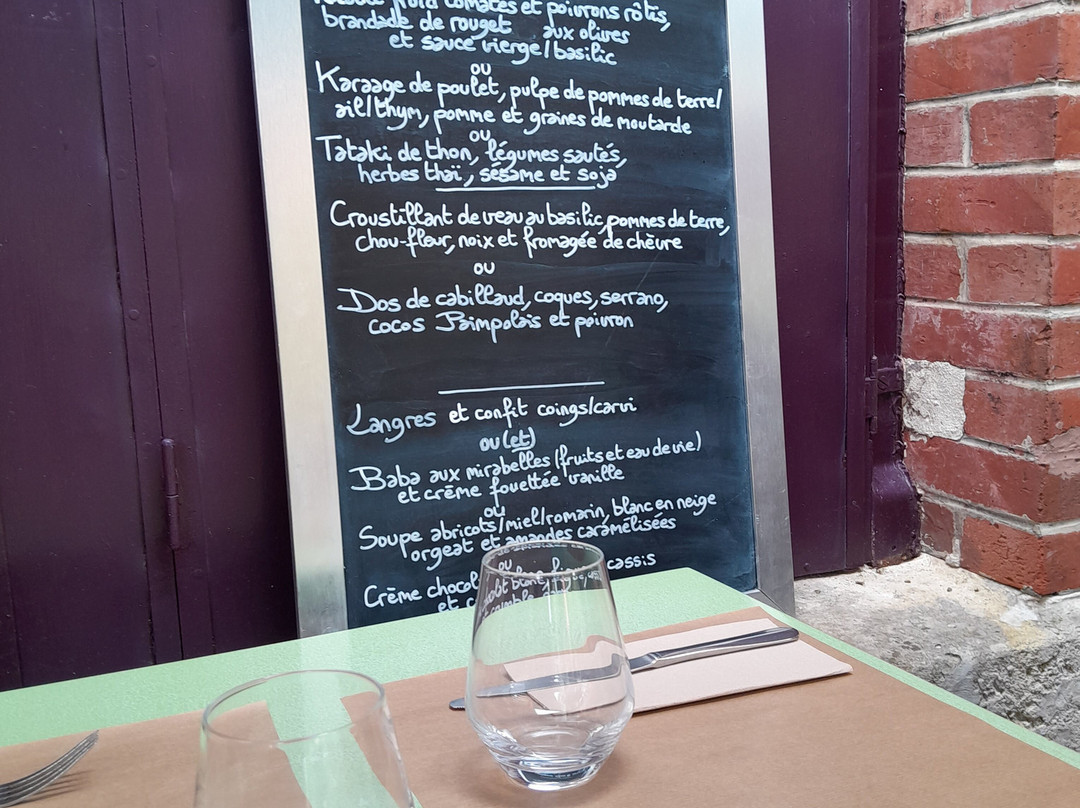 froid tomates et poivrons rôtis,
brandade de rouget aux olives
et sauce vierge/basilic
ou
Karaage de poulet, pulpe de pommes de terre/
ail/thym, pomme et graines de moutarde
ou
Tataki de thon, légumes sautés,
herbes thaï, sésame et soja
Croustillant de veau au basilic, pommes de terre,
chou-fleur, noix et fromagée de chèvre
ou
Dos de cabillaud, coques, serrano,
cocos Paimpolais et poivron
Langres et confit coings/carvi
ou (et)
Baba aux mirabelles (fruits et eau de vie)
et crème fouettée vanille
ou
Soupe abricots/miel/romarin, blanc en neige
orgeat et amandes caramélisées
ou
Crème chocolat blanc, figue, cassis
et